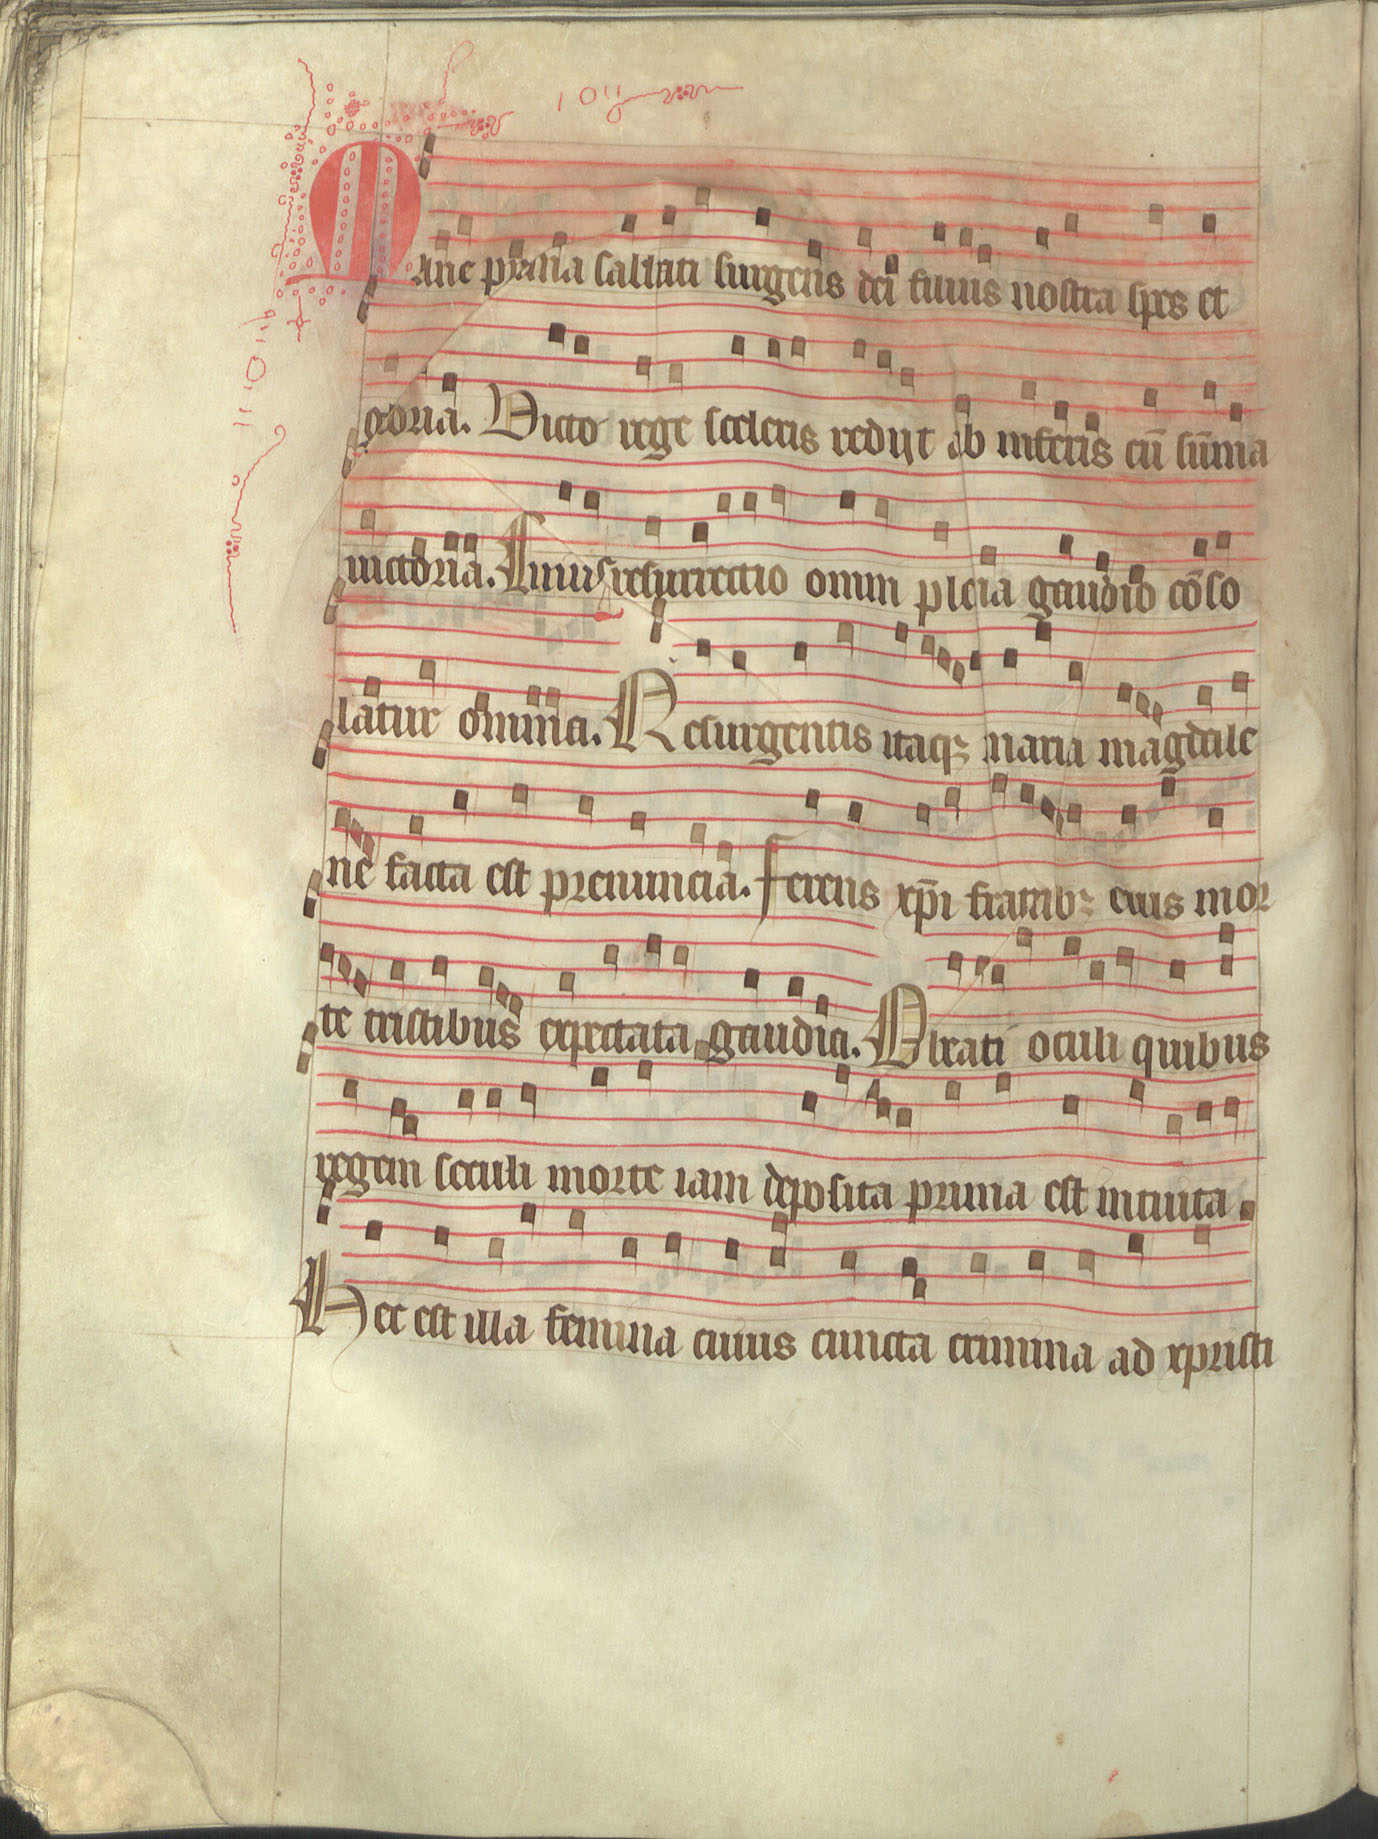 Mane prima sabbati surgens dei filius nostra spes et
gloria. Victo rege sceleris redijt ab inferis cū sūma
uictoria. Cuius resurrectio omni plena gaudio cōso
latur omnia. Resurgentis itaqꝫ maria magdale
ne facta est prenuncia. Ferens xp̄i fratribꝫ eius mor
te tristibus expectata gaudia. O beati oculi quibus
regem seculi morte iam deposita prima est intuita
Hec est illa femina cuius cuncta crimina ad xpristi